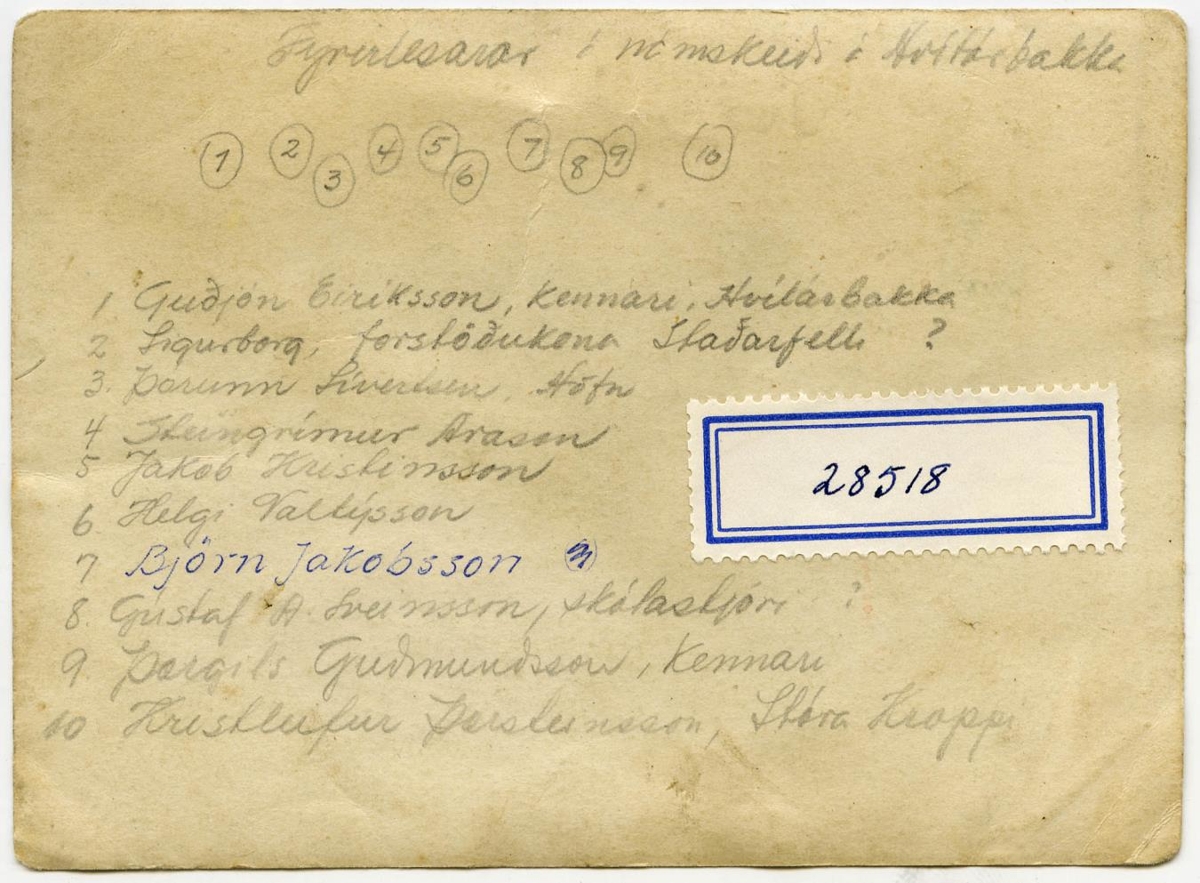 Fyrirlesarar í námskeiði í Hvítárbakka
1 2 3 4 5 6 7 8 9 10
1 Guðjón Eiríksson, Kennari, Hvítárbakka
2 Sigurborg, forstöðukona Staðarfelli ?
3. Þórunn Sivertsen, Höfn
4 Steingrímur Arason
5 Jakob Kristinsson
6 Helgi Valtýsson
7 Björn Jakobsson
8. Gústaf A. Sveinsson, skólastjóri ?
9 Þorgils Guðmundsson, Kennari
10 Kristleifur Þorsteinsson, Stóra Kroppi
28518